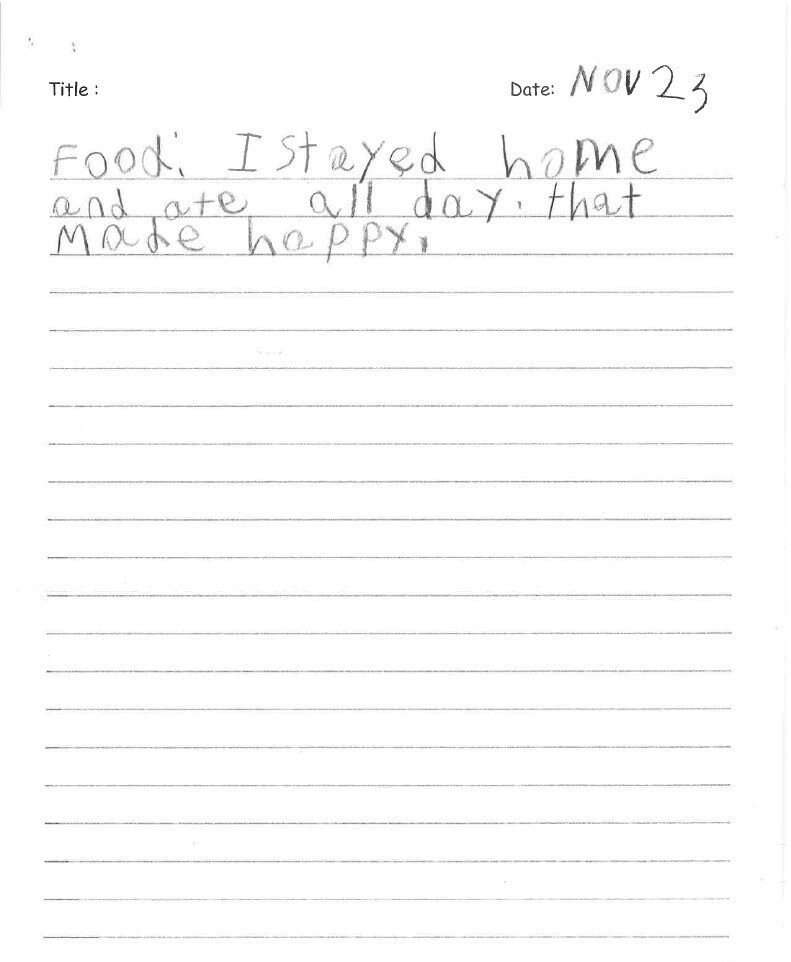 Title : Date: NOV 23
Food: I stayed home
and ate all day. that
Made happy.